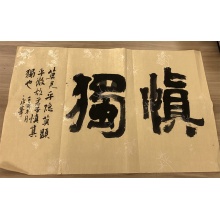 愼獨
莫見乎隱莫顯
乎微故君子慎其
獨也